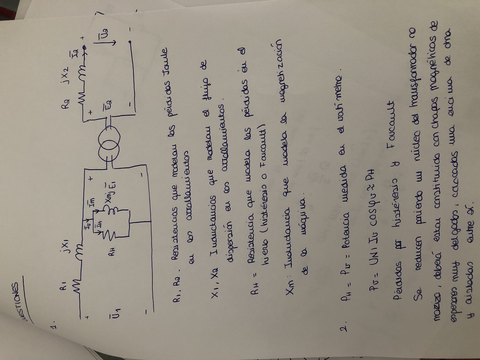 CUESTIONES
1.
R1 jX1 R2 jX2
U1 RH Xm E1 E2 U2
R1, R2. Resistencias que modelan las pérdidas Joule
en los arrollamientos
X1, X2 Inductancias que modelan el flujo de
dispersión en los arrollamientos.
RH = Resistencia que modela las pérdidas en el
hierro (histéresis o Foucault)
Xm: Inductancia que modela la magnetización
de la máquina.
2. PH = Pv = Potencia medida en el vatímetro.
Pv = UN1 Iv cosφv ≈ PH
Pérdidas por histéresis y Foucault
Se reducen poniendo un núcleo del transformador no
macizo, deberá estar constituido con chapas magnéticas de
espesores muy delgados, colocadas una encima de otra
y aisladas entre sí.